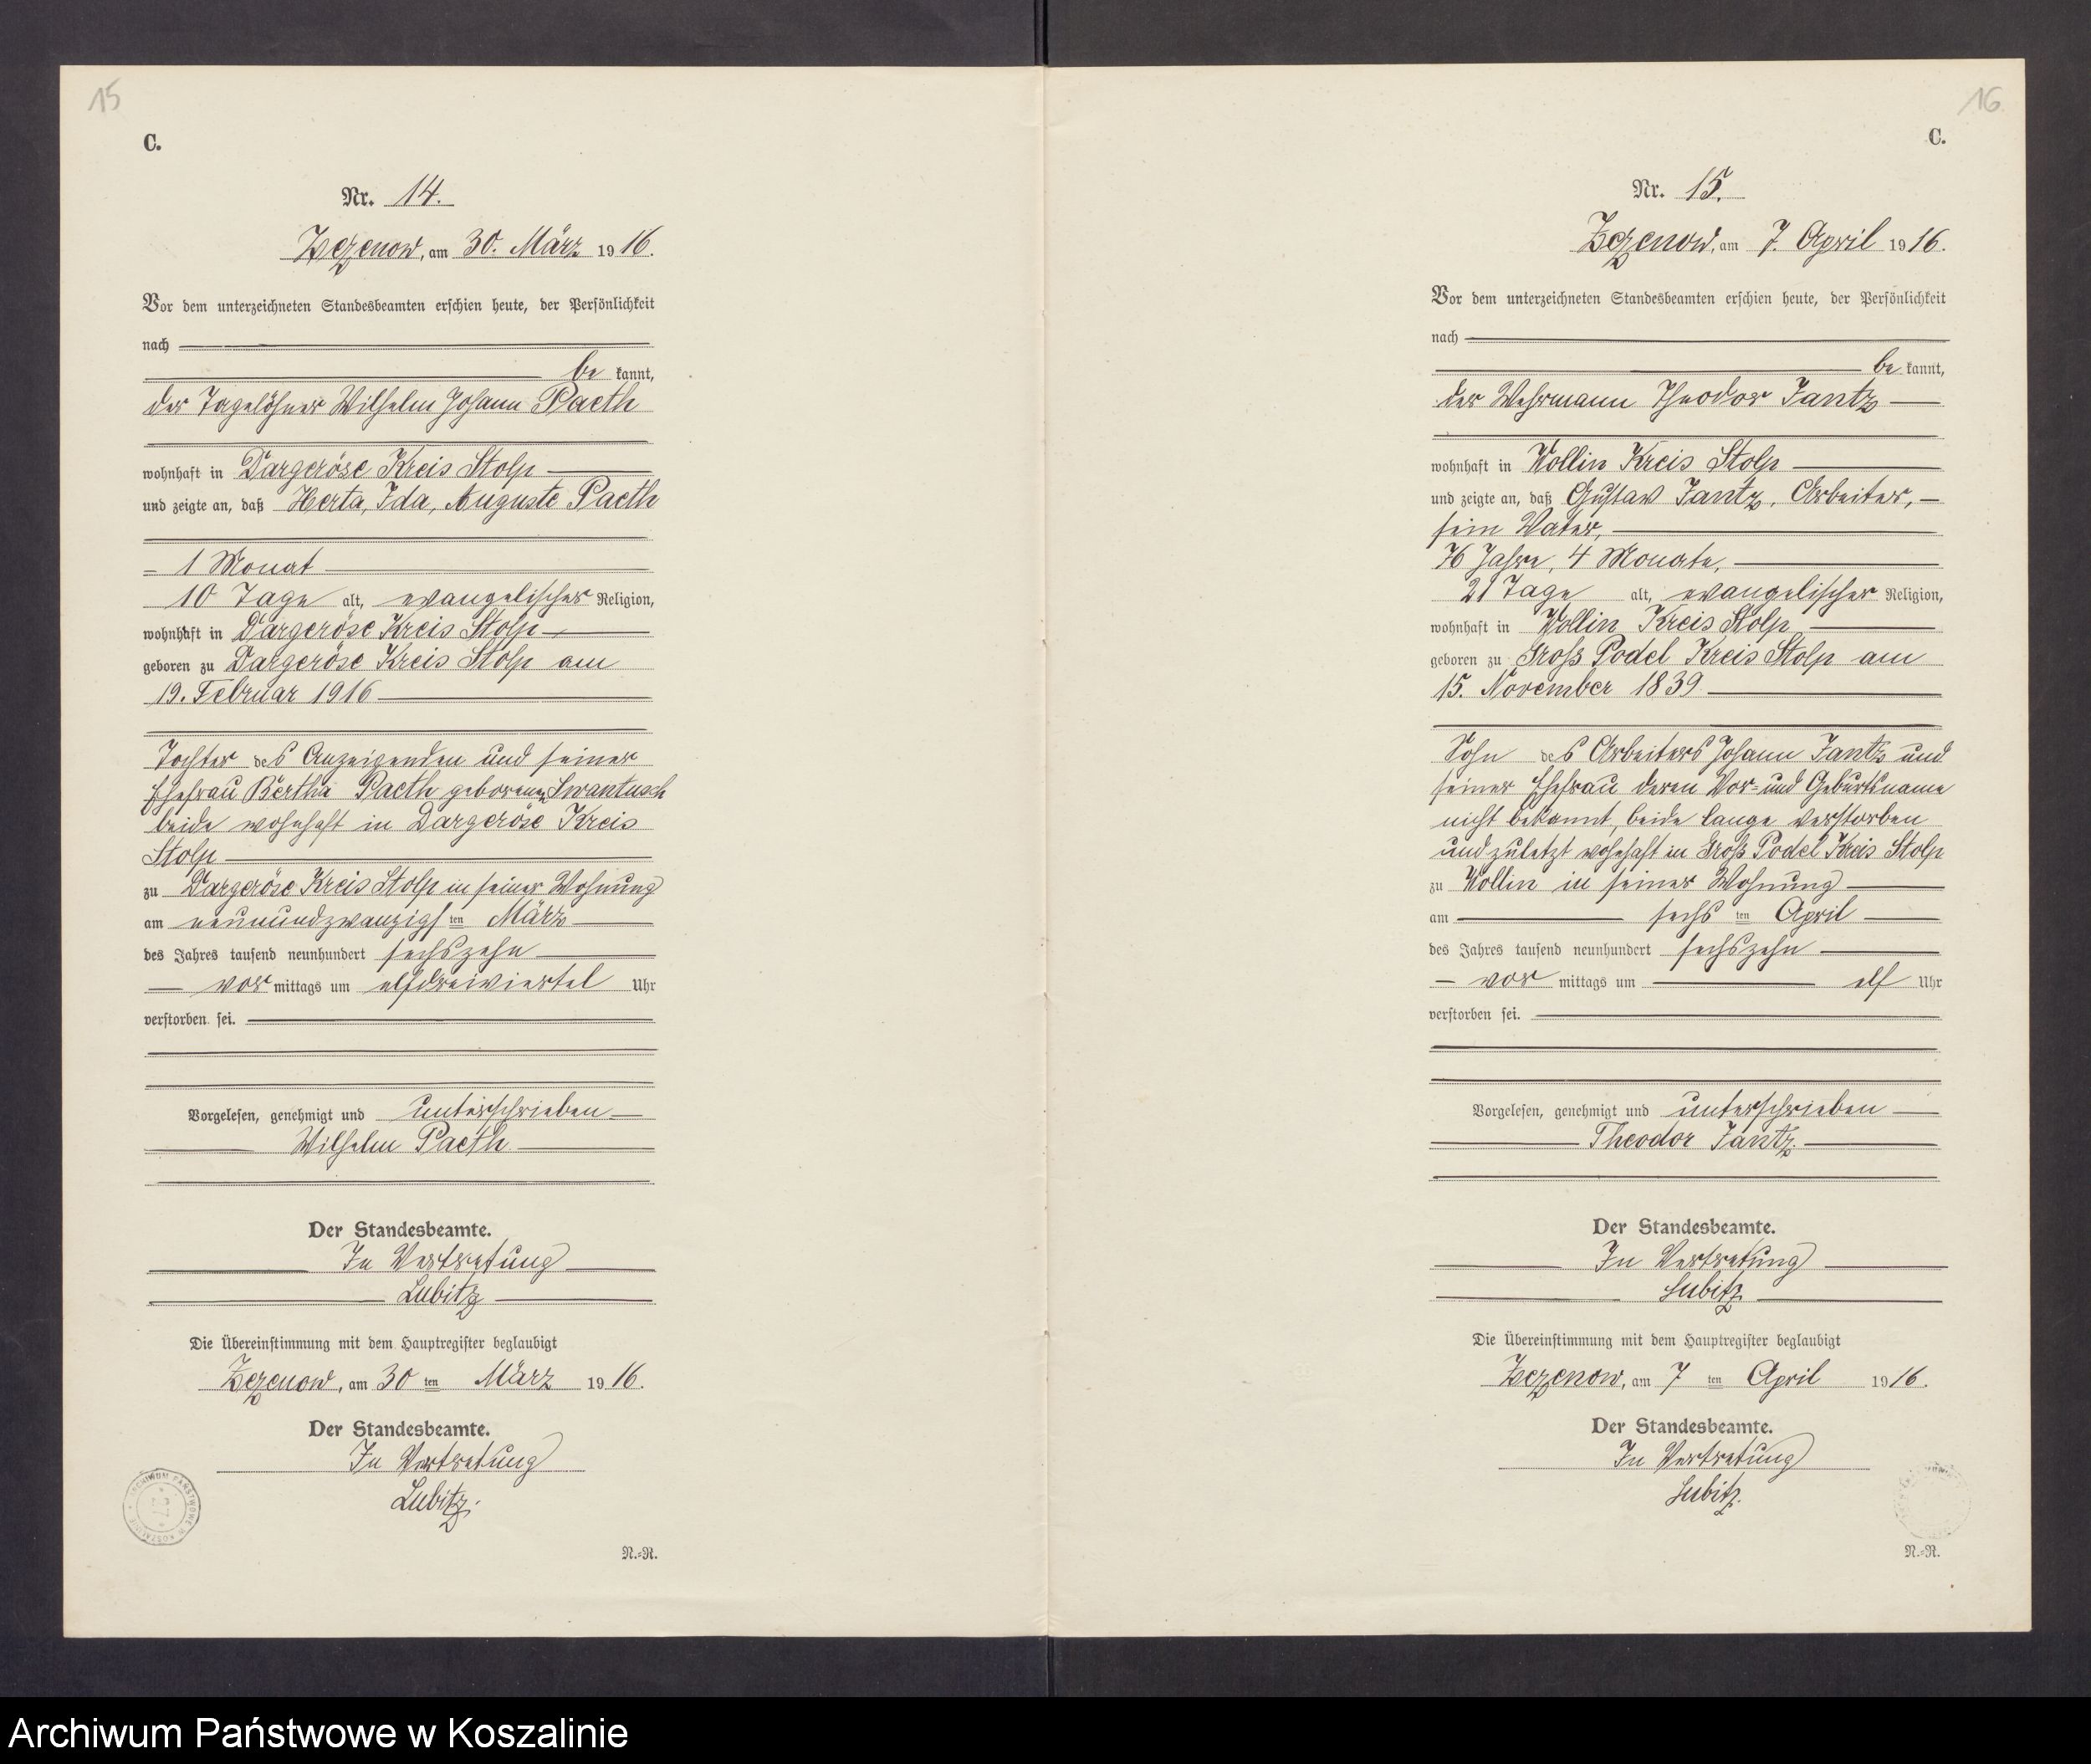 15
C.
Nr. 14.
Zezenow, am 30. März 1916.
Vor dem unterzeichneten Standesbeamten erschien heute, der Persönlichkeit
nach
be kannt,
der Tagelöhner Wilhelm Johann Paeth
wohnhaft in Dargeröse Kreis Stolp
und zeigte an, daß Herta, Ida, Auguste Paeth
1 Monat
10 Tage alt, evangelischer Religion,
wohnhaft in Dargeröse Kreis Stolp
geboren zu Dargeröse Kreis Stolp am
19. Februar 1916
Tochter des Anzeigenden und seiner
Ehefrau Bertha Paeth geborenen Swantusch
beide wohnhaft in Dargeröse Kreis
Stolp
zu Dargeröse Kreis Stolp in seiner Wohnung
am neunundzwanzigsten März
des Jahres tausend neunhundert sechszehn
vor mittags um elfdreiviertel Uhr
verstorben sei.
Vorgelesen, genehmigt und unterschrieben
Wilhelm Paeth
Der Standesbeamte.
In Vertretung
Lubitz
Die Übereinstimmung mit dem Hauptregister beglaubigt
Zezenow, am 30 ten März 1916.
Der Standesbeamte.
In Vertretung
Lubitz.
ARCHIWUM PAŃSTWOWE W KOSZALINIE
N.=R.
16
C.
Nr. 15.
Zezenow, am 7. April 1916.
Vor dem unterzeichneten Standesbeamten erschien heute, der Persönlichkeit
nach
be kannt,
der Wehrmann Theodor Jantz
wohnhaft in Wollin Kreis Stolp
und zeigte an, daß Gustav Jantz, Arbeiter,
sein Vater,
76 Jahre, 4 Monate,
21 Tage alt, evangelischer Religion,
wohnhaft in Wollin Kreis Stolp
geboren zu Groß Podel Kreis Stolp am
15. November 1839
Sohn des Arbeiters Johann Jantz und
seiner Ehefrau deren Vor- und Geburtsname
nicht bekannt, beide lange verstorben
und zuletzt wohnhaft in Groß Podel Kreis Stolp
zu Wollin in seiner Wohnung
am sechs ten April
des Jahres tausend neunhundert sechszehn
vor mittags um elf Uhr
verstorben sei.
Vorgelesen, genehmigt und unterschrieben
Theodor Jantz.
Der Standesbeamte.
In Vertretung
Lubitz
Die Übereinstimmung mit dem Hauptregister beglaubigt
Zezenow, am 7 ten April 1916.
Der Standesbeamte.
In Vertretung
Lubitz.
N.=R.
Archiwum Państwowe w Koszalinie